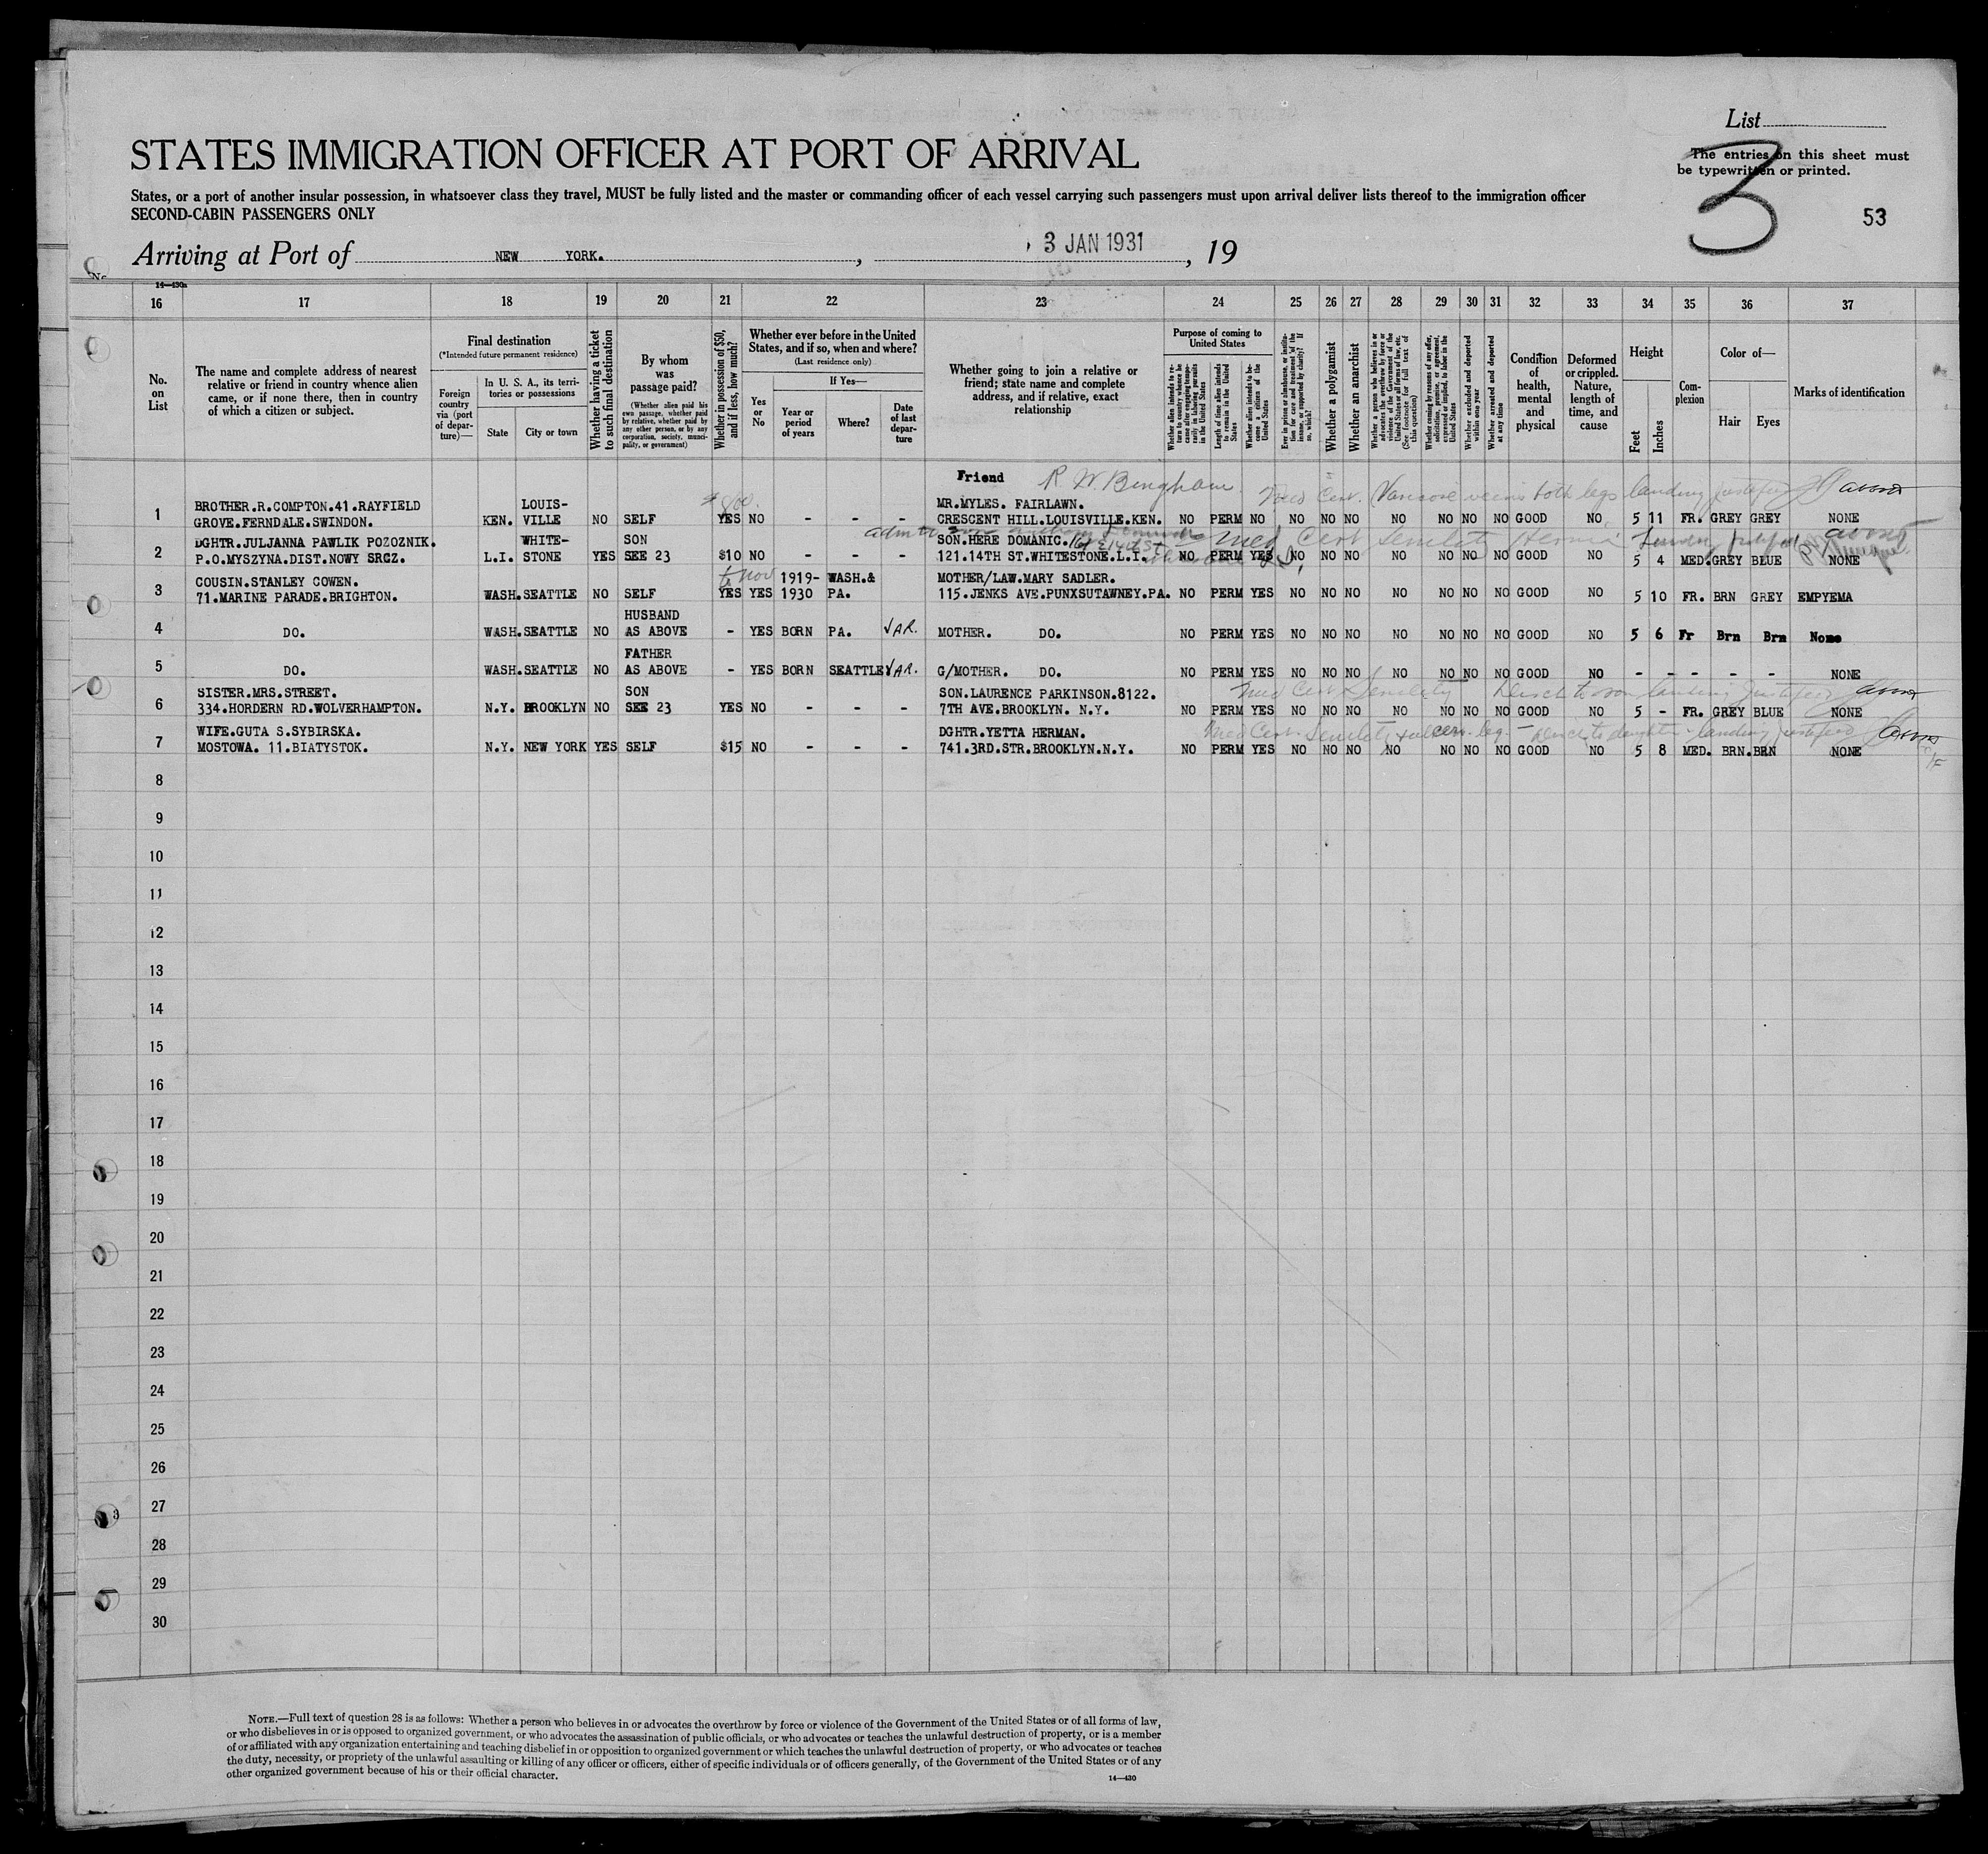 List
STATES IMMIGRATION OFFICER AT PORT OF ARRIVAL
The entries on this sheet must
be typewritten or printed.
3
53
States, or a port of another insular possession, in whatsoever class they travel, MUST be fully listed and the master or commanding officer of each vessel carrying such passengers must upon arrival deliver lists thereof to the immigration officer
SECOND-CABIN PASSENGERS ONLY
Arriving at Port of NEW YORK. , 3 JAN 1931 , 19
14—430a
16 17 18 19 20 21 22 23 24 25 26 27 28 29 30 31 32 33 34 35 36 37
No. on List
The name and complete address of nearest relative or friend in country whence alien came, or if none there, then in country of which a citizen or subject.
Final destination
(*Intended future permanent residence)
Foreign country via (port of departure)—
In U. S. A., its territories or possessions
State
City or town
Whether having a ticket to such final destination
By whom was passage paid?
(Whether alien paid his own passage, whether paid by relative, whether paid by any other person, or by any corporation, society, municipality, or government)
Whether in possession of $50, and if less, how much?
Whether ever before in the United States, and if so, when and where?
(Last residence only)
Yes or No
If Yes—
Year or period of years
Where?
Date of last departure
Whether going to join a relative or friend; state name and complete address, and if relative, exact relationship
Purpose of coming to United States
Whether alien intends to return to country whence he came after engaging temporarily in laboring pursuits in the United States
Length of time alien intends to remain in the United States
Whether alien intends to become a citizen of the United States
Ever in prison or almshouse, or institution for care and treatment of the insane, or supported by charity? If so, which?
Whether a polygamist
Whether an anarchist
Whether a person who believes in or advocates the overthrow by force or violence of the Government of the United States or all forms of law, etc. (See footnote for full text of this question)
Whether coming by reasons of any offer, solicitation, promise, or agreement, expressed or implied, to labor in the United States
Whether excluded and deported within one year
Whether arrested and deported at any time
Condition of health, mental and physical
Deformed or crippled. Nature, length of time, and cause
Height
Feet
Inches
Complexion
Color of—
Hair
Eyes
Marks of identification
Friend R W Bingham
Med Cert. Varicose veins both legs landing justified
BROTHER.R.COMPTON.41.RAYFIELD LOUIS- $800. MR.MYLES. FAIRLAWN.
1 GROVE.FERNDALE.SWINDON. KEN. VILLE NO SELF YES NO - - - CRESCENT HILL.LOUISVILLE.KEN. NO PERM NO NO NO NO NO NO NO NO GOOD NO 5 11 FR. GREY GREY NONE
DGHTR.JULJANNA PAWLIK POZOZNIK. WHITE- SON SON.HERE DOMANIC. Med Cert Senility Hernia
2 P.O.MYSZYNA.DIST.NOWY SRCZ. L.I. STONE YES SEE 23 $10 NO - - - 121.14TH ST.WHITESTONE.L.I. NO PERM YES NO NO NO NO NO NO NO GOOD NO 5 4 MED.GREY BLUE NONE
COUSIN.STANLEY COWEN. Nov 1919- WASH.& MOTHER/LAW.MARY SADLER.
3 71.MARINE PARADE.BRIGHTON. WASH.SEATTLE NO SELF YES YES 1930 PA. 115.JENKS AVE.PUNXSUTAWNEY.PA. NO PERM YES NO NO NO NO NO NO NO GOOD NO 5 10 FR. BRN GREY EMPYEMA
HUSBAND
4 DO. WASH.SEATTLE NO AS ABOVE - YES BORN PA. √AR. MOTHER. DO. NO PERM YES NO NO NO NO NO NO NO GOOD NO 5 6 Fr Brn Brn None
FATHER
5 DO. WASH.SEATTLE NO AS ABOVE - YES BORN SEATTLE √AR. G/MOTHER. DO. NO PERM YES NO NO NO NO NO NO NO GOOD NO - - - - - NONE
SISTER.MRS.STREET. SON SON.LAURENCE PARKINSON.8122. Med Cert Senility Disch to son landing justified
6 334.HORDERN RD.WOLVERHAMPTON. N.Y. BROOKLYN NO SEE 23 YES NO - - - 7TH AVE.BROOKLYN. N.Y. NO PERM YES NO NO NO NO NO NO NO GOOD NO 5 - FR. GREY BLUE NONE
WIFE.GUTA S.SYBIRSKA. DGHTR.YETTA HERMAN. Med Cert. Senility leg - Disch to daughter - landing justified
7 MOSTOWA. 11.BIATYSTOK. N.Y. NEW YORK YES SELF $15 NO - - - 741.3RD.STR.BROOKLYN.N.Y. NO PERM YES NO NO NO NO NO NO NO GOOD NO 5 8 MED. BRN.BRN NONE
8
9
10
11
12
13
14
15
16
17
18
19
20
21
22
23
24
25
26
27
28
29
30
NOTE.—Full text of question 28 is as follows: Whether a person who believes in or advocates the overthrow by force or violence of the Government of the United States or of all forms of law,
or who disbelieves in or is opposed to organized government, or who advocates the assassination of public officials, or who advocates or teaches the unlawful destruction of property, or is a member
of or affiliated with any organization entertaining and teaching disbelief in or opposition to organized government or which teaches the unlawful destruction of property, or who advocates or teaches
the duty, necessity, or propriety of the unlawful assaulting or killing of any officer or officers, either of specific individuals or of officers generally, of the Government of the United States or of any
other organized government because of his or their official character.
14—430